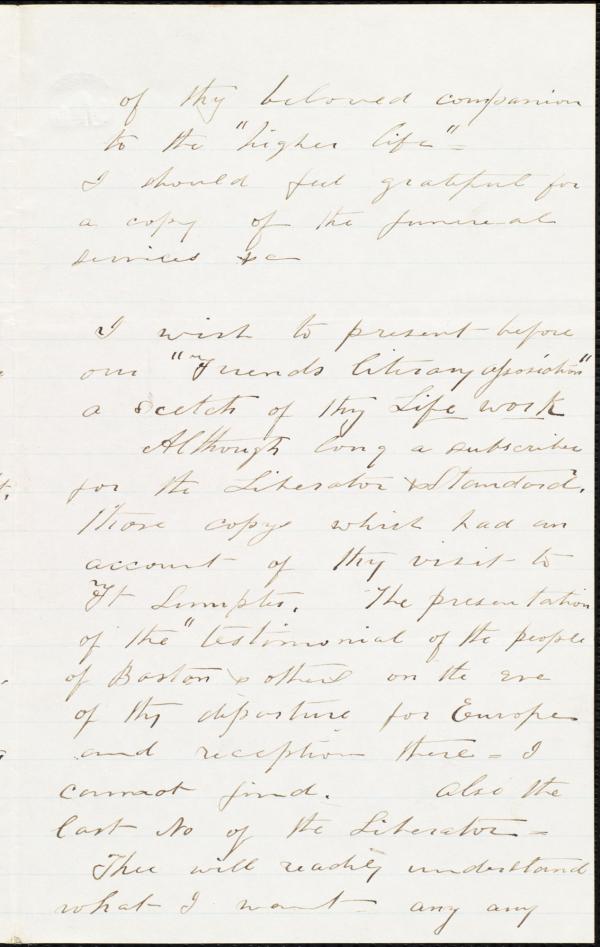 of thy beloved companion
to the "higher life" =
I should feel grateful for
a copy of the funereal
services &c
I wish to present before
our "Friends literary association"
a scetch of thy Life work
Although long a subscriber
for the Liberator & Standard.
those copys which had an
account of thy visit to
Ft Sumpter. The presentation
of the "testimonial of the people
of Boston & others on the eve
of thy departure for Europe
and reception there = I
cannot find. also the
last No of the Liberator =
Thee will readily understand
what I want any any